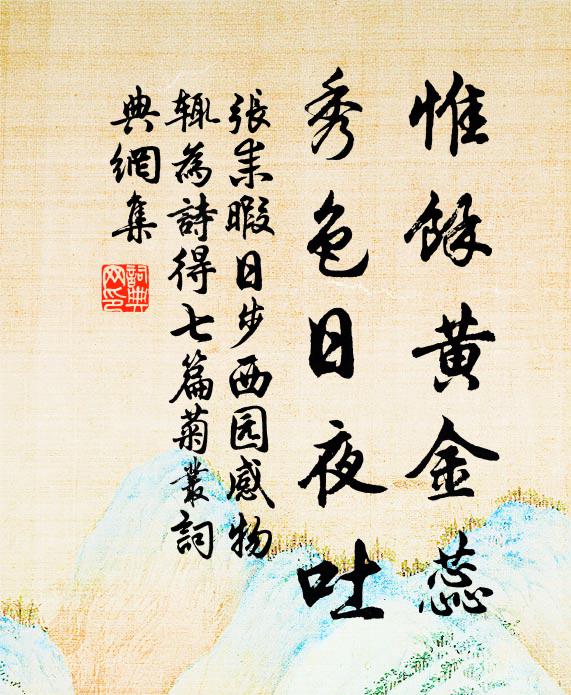 惟餘黄金蕊
秀色日夜吐
張耒暇日步西园感物
輒為詩得七篇菊叢詞
典網集
詞典網印